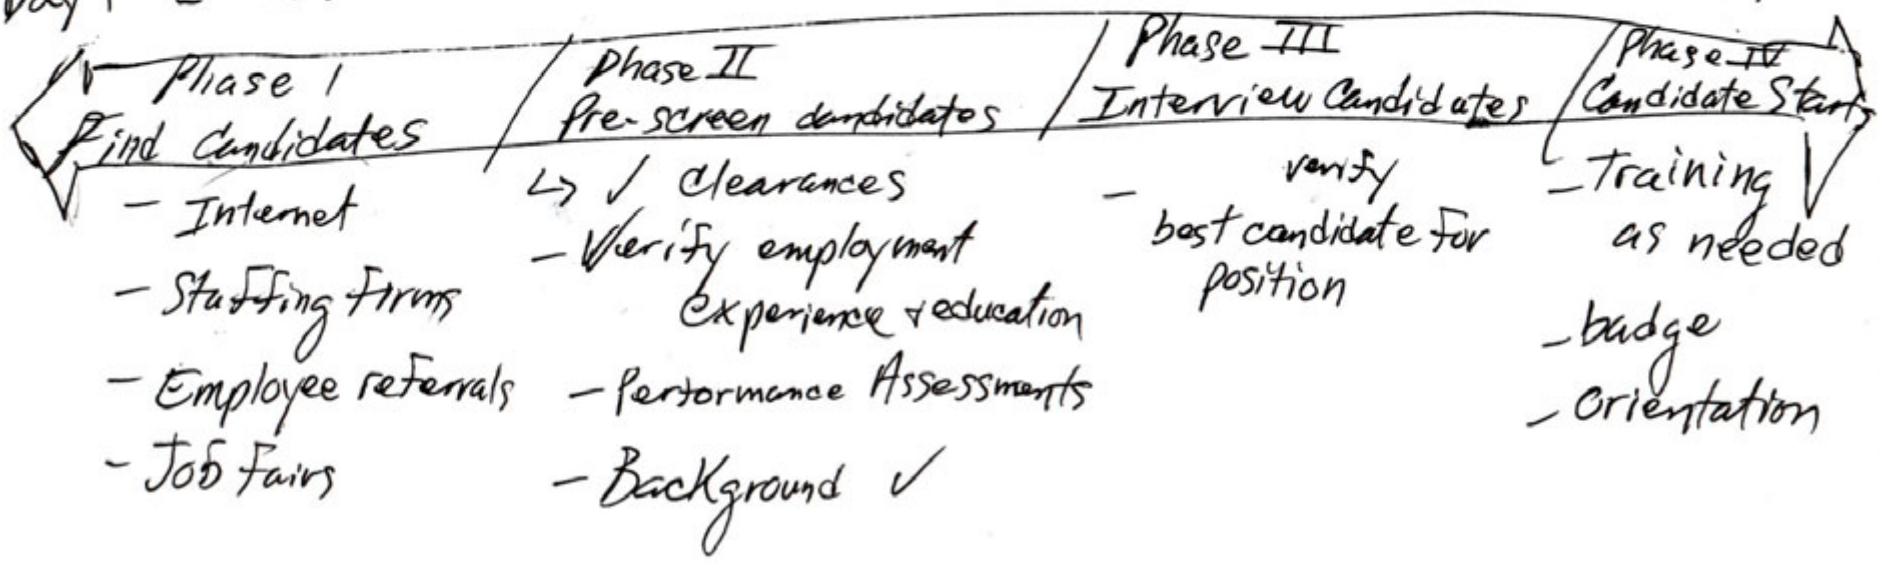 Day 1
Phase 1
Find Candidates
- Internet
- Staffing Firms
- Employee referrals
- Job Fairs
Phase II
Pre-screen candidates
↳ ✓ Clearances
- Verify employment
experience + education
- Performance Assessments
- Background ✓
Phase III
Interview Candidates
- verify
best candidate for
position
Phase IV
Candidate Starts
- Training
as needed
- badge
- orientation